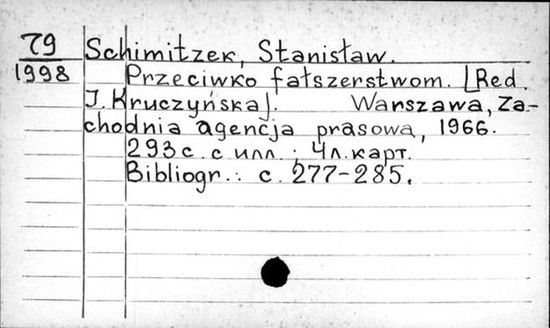 79
1998
Schimitzek, Stanisław.
Przeciwko fałszerstwom. [Red.
J. Kruczyńska]. Warszawa, Za-
chodnia agencja prasowa, 1966.
293 с. с илл.; 4 л. карт.
Bibliogr.: с. 277-285.